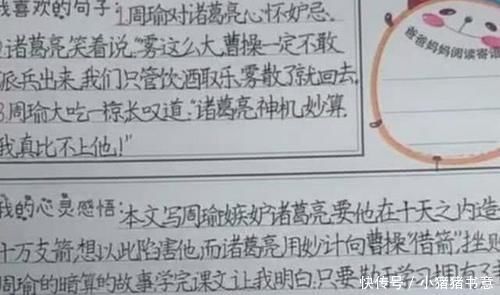 我喜欢的句子:1.周瑜对诸葛亮心怀妒忌.
诸葛亮笑着说,"雾这么大,曹操一定不敢
派兵出来,我们只管饮酒取乐,雾散了就回去.
3.周瑜大吃一惊长叹道:"诸葛亮神机妙算
我真比不上他!"
爸爸妈妈阅读寄语
我的心灵感悟:本文写周瑜嫉妒诸葛亮,要他在十天之内造
十万支箭,想以此陷害他,而诸葛亮用妙计向曹操"借箭",挫
周瑜的暗算的故事学完课文让我明白:只要
快传号 / 小猪猪书意